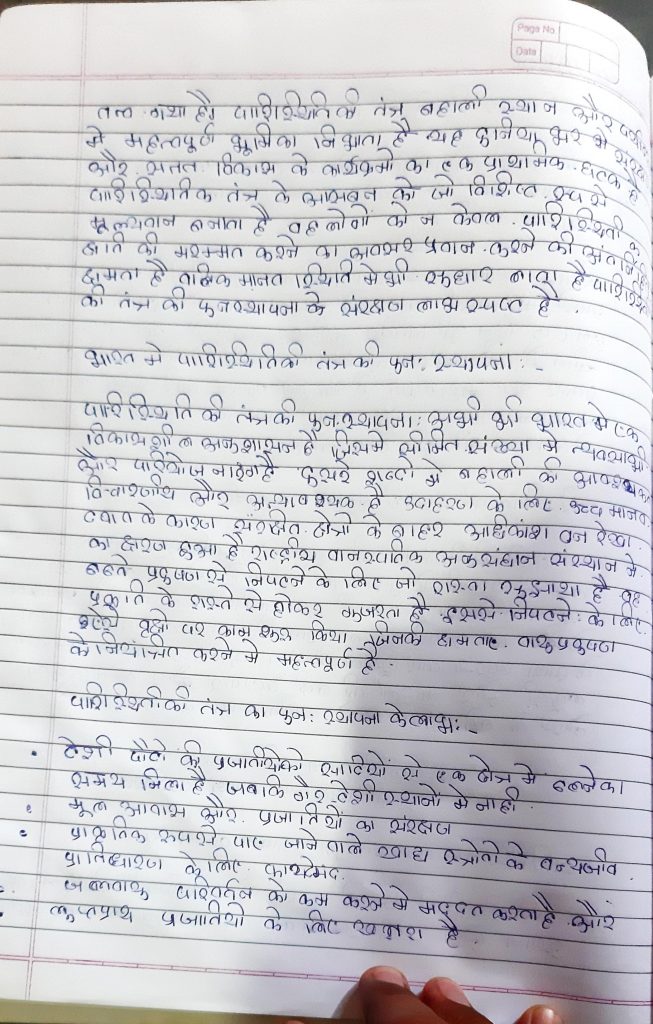 Page No
Date
गया है। पारिस्थितिकी तंत्र बहाली स्थान और
मे महत्वपूर्ण भूमिका निभाता है यह दुनिया भर मे
और सतत विकास के कार्यक्रमो का एक प्राथमिक घटक है
पारिस्थितिक तंत्र के को जो विशिष्ट रूप से
मूल्यवान बनाता है वह लोगों को न केवल पारिस्थिती
क्षति की मरम्मत करने का अवसर प्रदान करने की
क्षमता है बल्कि मानव स्थिति मे भी सुधार लाता है पारिस्थि
की तंत्र की पुनस्थापना के संरक्षण लाभ स्पष्ट है.
भारत मे पारिस्थितिकी तंत्र की पुन: स्थापना: -
पारिस्थिति की तंत्र की पुन:स्थापना: अभी भी भारत मे एक
विकासशील अनुशासन है जिसमे सीमित संख्या मे
और परियोजनाएं है दुसरे शब्दो मे बहाली की
विचारणीय और अत्यावश्यक है उदाहरण के लिए मानव
दबाव के कारण संरक्षित क्षेत्रो के बाहर अधिकांश वन रेखा
का क्षरण हुआ है राष्ट्रीय वानस्पतिक अनुसंधान संस्थान ने
बढते प्रदुषण से निपटने के लिए जो रास्ता सुझाया है वह
प्रकृति के रास्ते से होकर गुजरता है इससे निपटने के लिए
वृक्षो पर काम शुरू किया जिनकी क्षमताए वायुप्रदुषण
को नियंत्रित करने मे महत्वपूर्ण है.
पारिस्थितीकी तंत्र का पुन: स्थापना के लाभ: -
• देशी पौधो की प्रजातीयोको सादियो से एक क्षेत्र मे ढलने का
समय मिला है जबकि गैर देशी स्थानो मे नाही.
• मूल आवास और प्रजातियो का संरक्षण
• प्राकृतिक रूपसे पाए जाने वाले खाद्य स्त्रोतो के वन्यजीव
प्रतिधारण के लिए फायदेमंद.
• जलवायु परिवर्तन को कम करने मे मद्दत करता है और
• लुप्तप्राय प्रजातियो के लिए खतरा है.